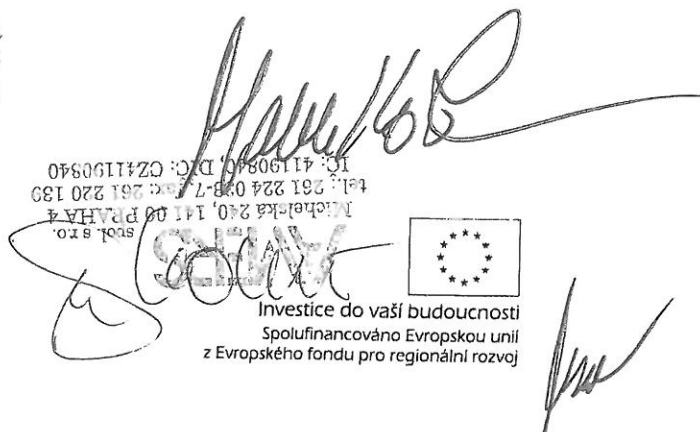 AMERS
spol. s r.o.
Michelská 240, 141 00 PRAHA 4
tel.: 261 224 038-7, fax: 261 220 139
IČ: 41190840, DIČ: CZ41190840
Investice do vaší budoucnosti
Spolufinancováno Evropskou unií
z Evropského fondu pro regionální rozvoj